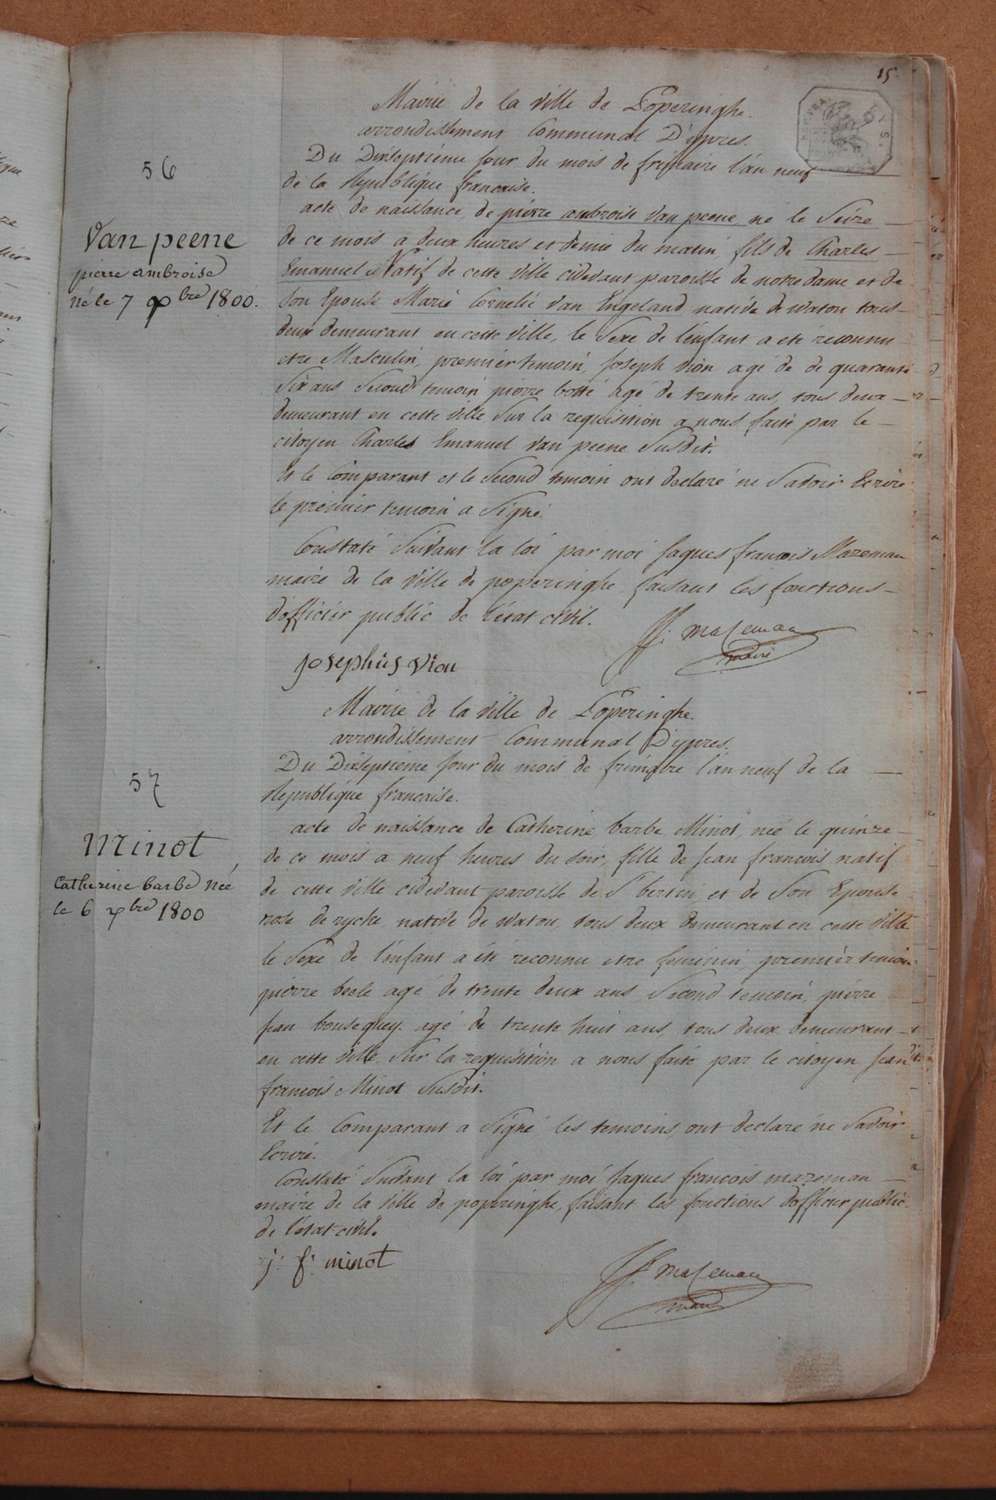 15
Mairie de la ville de Poperinghe
arrondissement Communal D'ypres.
56
Du Dixseptiéme jour du mois de frimaire l'an neuf
de la Republique francaise.
Van peene
pierre ambroise
né le 7 xbre 1800.
acte de naissance de pierre ambroise Van peene né le Seize
de ce mois a deux heures et demie du matin, fils de Charles
Emanuel Natif de cette ville cidevant paroisse de notre dame et de
son Epouse Marie Cornelie Van Engeland native de watou tous
deux demeurant en cette ville, le Sexe de l'enfant a eté reconnu
etre Masculin, premier temoin, Joseph Vion agé de de quarante
Six ans Second temoin pierre botte agé de trente ans, tous deux
demeurant en cette ville Sur la requisition a nous faite par le
citoyen Charles Emanuel Van peene Susdit.
Et le Comparant et le Second temoin ont declaré ne Savoir Ecrire
le premier temoin a Signé
Constaté Suivant la loi par moi Jaques francois Mazeman
maire de la ville de poperinghe faisant les fonctions
d'officier public de l'etat civil.
J.f. mazeman
maire
Josephus Vion
Mairie de la ville de Poperinghe
arrondissement Communal D'ypres.
57
Du Dixseptieme Jour du mois de frimaire l'an neuf de la
Republique francaise.
Minot
Catherine barbe Née
le 6 xbre 1800
acte de naissance de Catherine barbe Minot, née le quinze
de ce mois a neuf heures du soir, fille de Jean francois natif
de cette ville cidevant paroisse de St bertin et de Son Epouse
rose de rycke native de watou, tous deux demeurant en cette ville
le Sexe de l'enfant a été reconnu etre feminin premiér temoin
pierre beele agé de trente deux ans Second temoin, piérre
Jean bousequey agé de trente huit ans, tous deux demeurant
en cette ville Sur la requisition a nous faite par le citoyen Jean
francois Minot Susdit.
Et le Comparant a Signé les temoins ont declaré ne Savoir
Ecrire.
Constaté Suivant la loi par moi Jaques francois mazeman
maire de la ville de poperinghe, faisant les fonctions d'officier public
de l'etat-civil.
j: f: minot
J.f. mazeman
maire